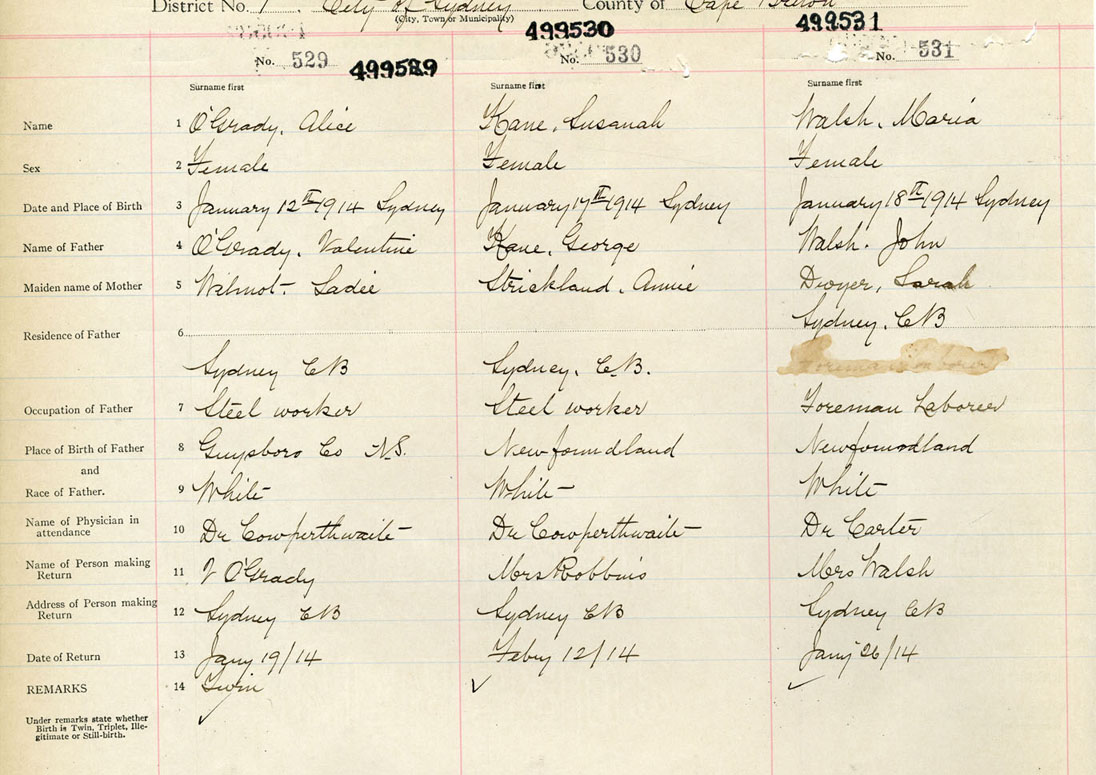 District No. 1 City of Sydney County of Cape Breton
(City, Town or Municipality)
499530 499531
No. 529 499529 No. 530 No. 531
Surname first Surname first Surname first
Name 1 O'Grady, Alice Kane, Susanah Walsh, Maria
Sex 2 Female Female Female
Date and Place of Birth 3 January 12th 1914 Sydney January 17th 1914 Sydney January 18th 1914 Sydney
Name of Father 4 O'Grady, Valentine Kane, George Walsh. John
Maiden name of Mother 5 Wilmot - Sadie Strickland, Annie Dwyer, Sarah
Sydney, CB
Residence of Father 6
Sydney CB Sydney, C.B.
Occupation of Father 7 Steel worker Steel worker Foreman Laborer
Place of Birth of Father 8 Guysboro Co N.S. Newfoundland Newfoundland
and
Race of Father. 9 White White White
Name of Physician in
attendance 10 Dr Cowperthwaite Dr Cowperthwaite Dr Carter
Name of Person making
Return 11 V O'Grady Mrs Robbins Mrs Walsh
Address of Person making
Return 12 Sydney CB Sydney CB Sydney CB
Date of Return 13 Jany 19/14 Feby 12/14 Jany 26/14
REMARKS 14 Twin ✓ ✓
✓
Under remarks state whether
Birth is Twin, Triplet, Ille-
gitimate or Still-birth.